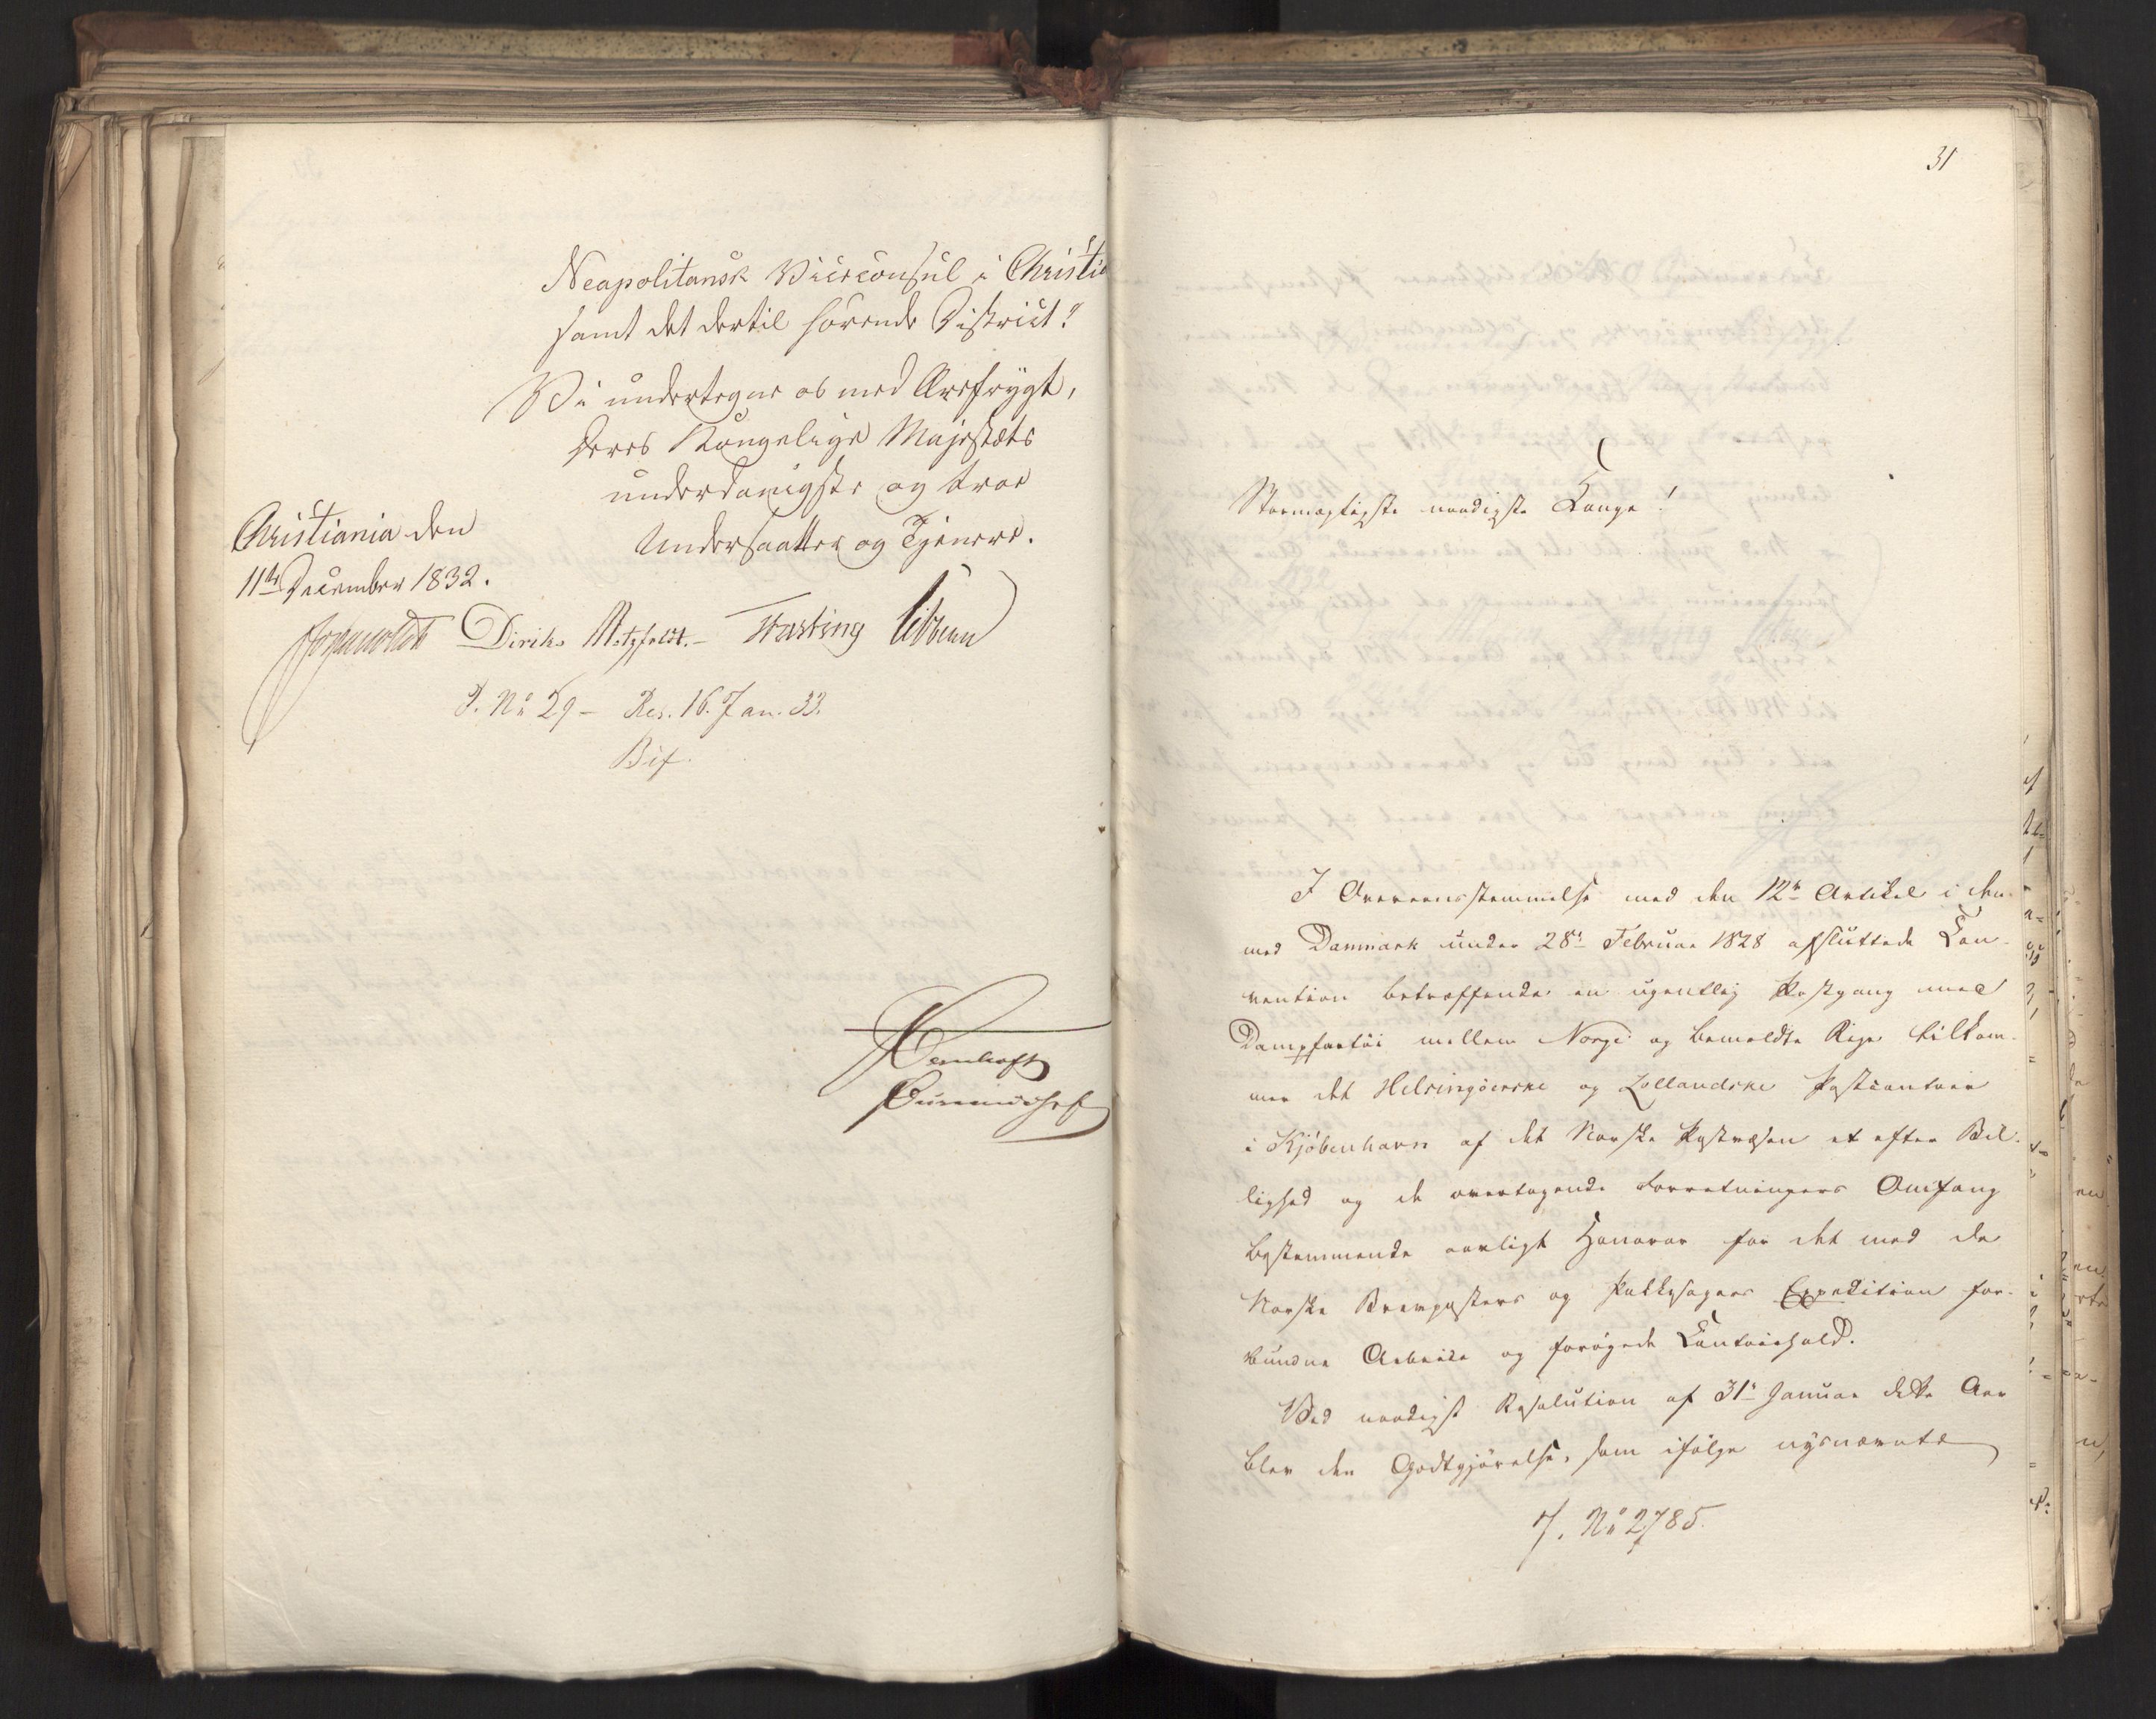 Neapolitansk Viceconsul i Christia
samt det dertil hörende District."
Vi undertegne os med Ærefrygt,
Deres Kongelige Majestæts
underdanigste og troe
Undersaatter og Tjenere.
Christiania den
11te December 1832.
Diriks Motzfeldt.- Fasting Vibe
P. No 29 - Res. 16. Jan. 33.
Bif.
31
Stormægtigste naadigste Konge!
I Overeensstemmelse med den 12te Artikel i den
med Danmark under 28de Februar 1828 afsluttede Con-
vention betræffende en ugentlig Postgang med
Dampfartöi mellem Norge og bemeldte Rige tilkom-
mer det Helsingöerske og Lollandske Postcontoir
i Kjöbenhavn af det Norske Postvæsen et efter Bil-
lighed og de overtagende Forretningers Omfang
bestemmende aarligt Honorar for det med de
Norske Brevposters og Pakkesagers Expedition for-
bundne Arbeide og forögede Contoirhold.
Ved naadigst Resolution af 31te Januar dette Aar
blev den Godtgjörelse, som ifölge nysnævnte
J. No 2785.